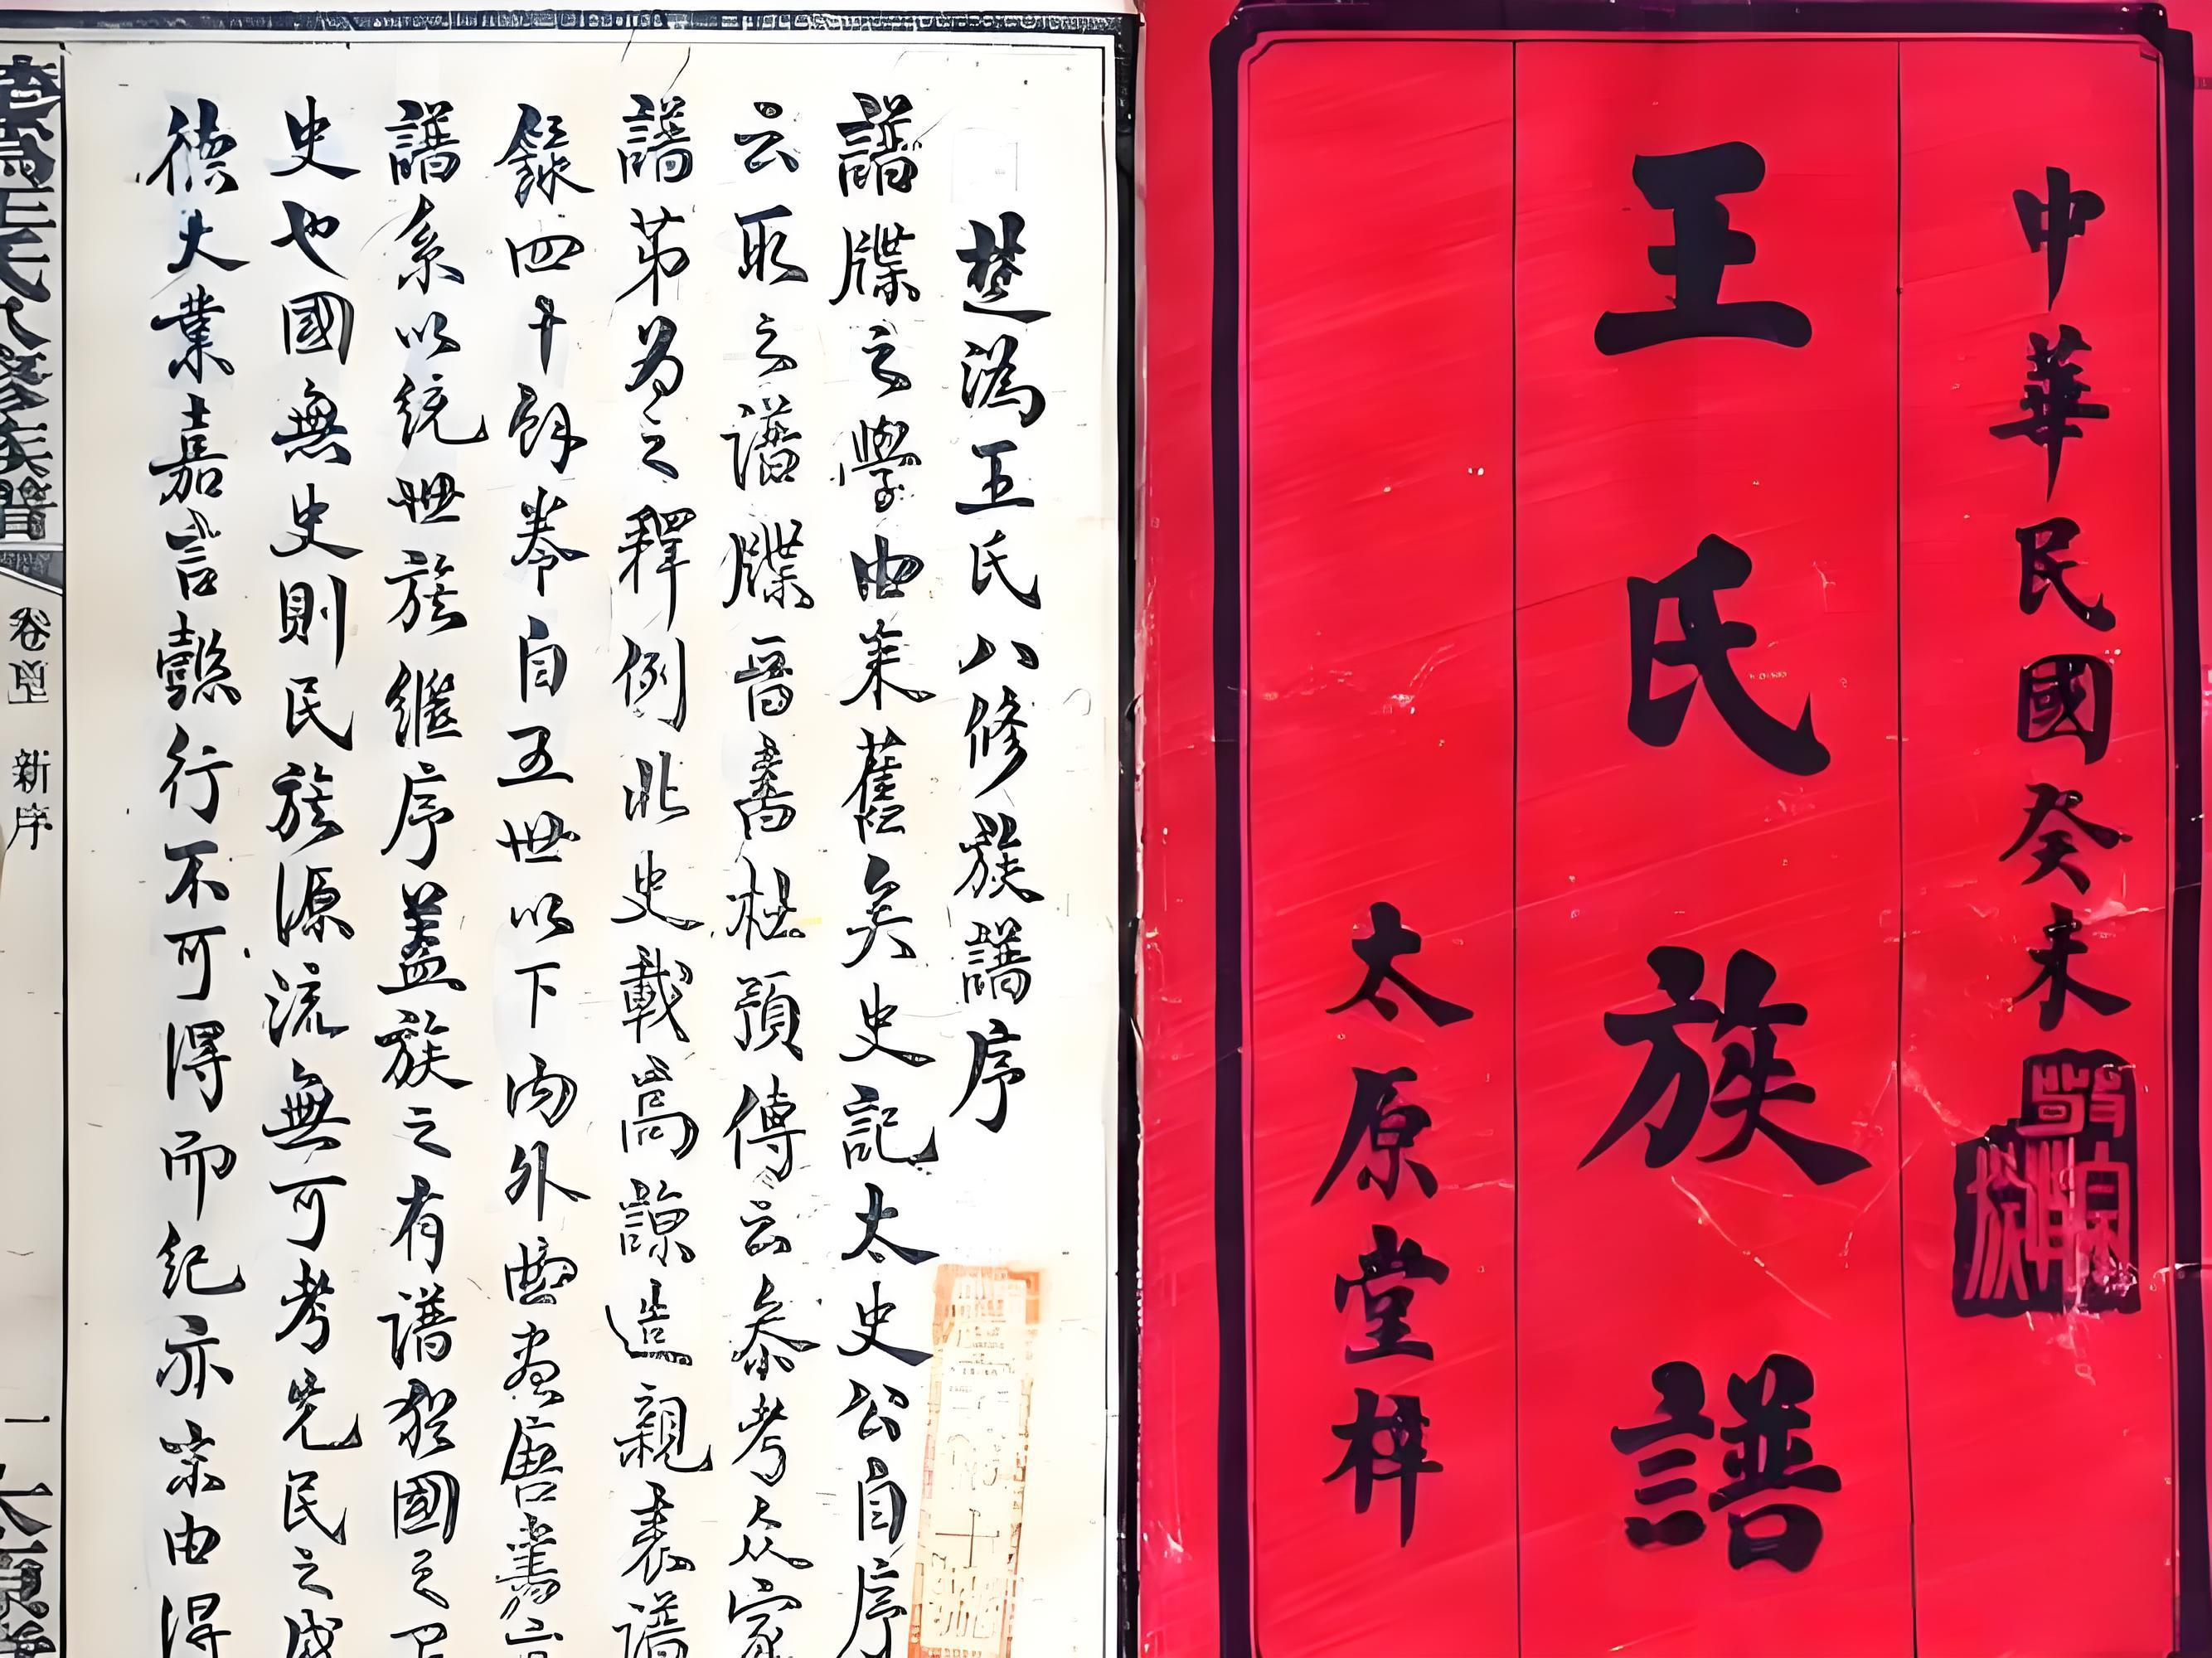 中華民國癸未
王氏族譜
太原堂梓
敬宗睦族
楚溈王氏八修族譜序
譜牒之學由来舊矣史記太史公自序
云取之譜牒晉書杜預傳云叅考众家
譜苐為之釋例北史載高諒造親表譜
錄四十餘卷自五世以下内外曲盡唐書言
譜系以統世族繼序蓋族之有譜猶國之
史也國無史則民族源流無可考先民之盛
德大業嘉言懿行不可得而紀亦末由得
王氏八修族譜
新序
一